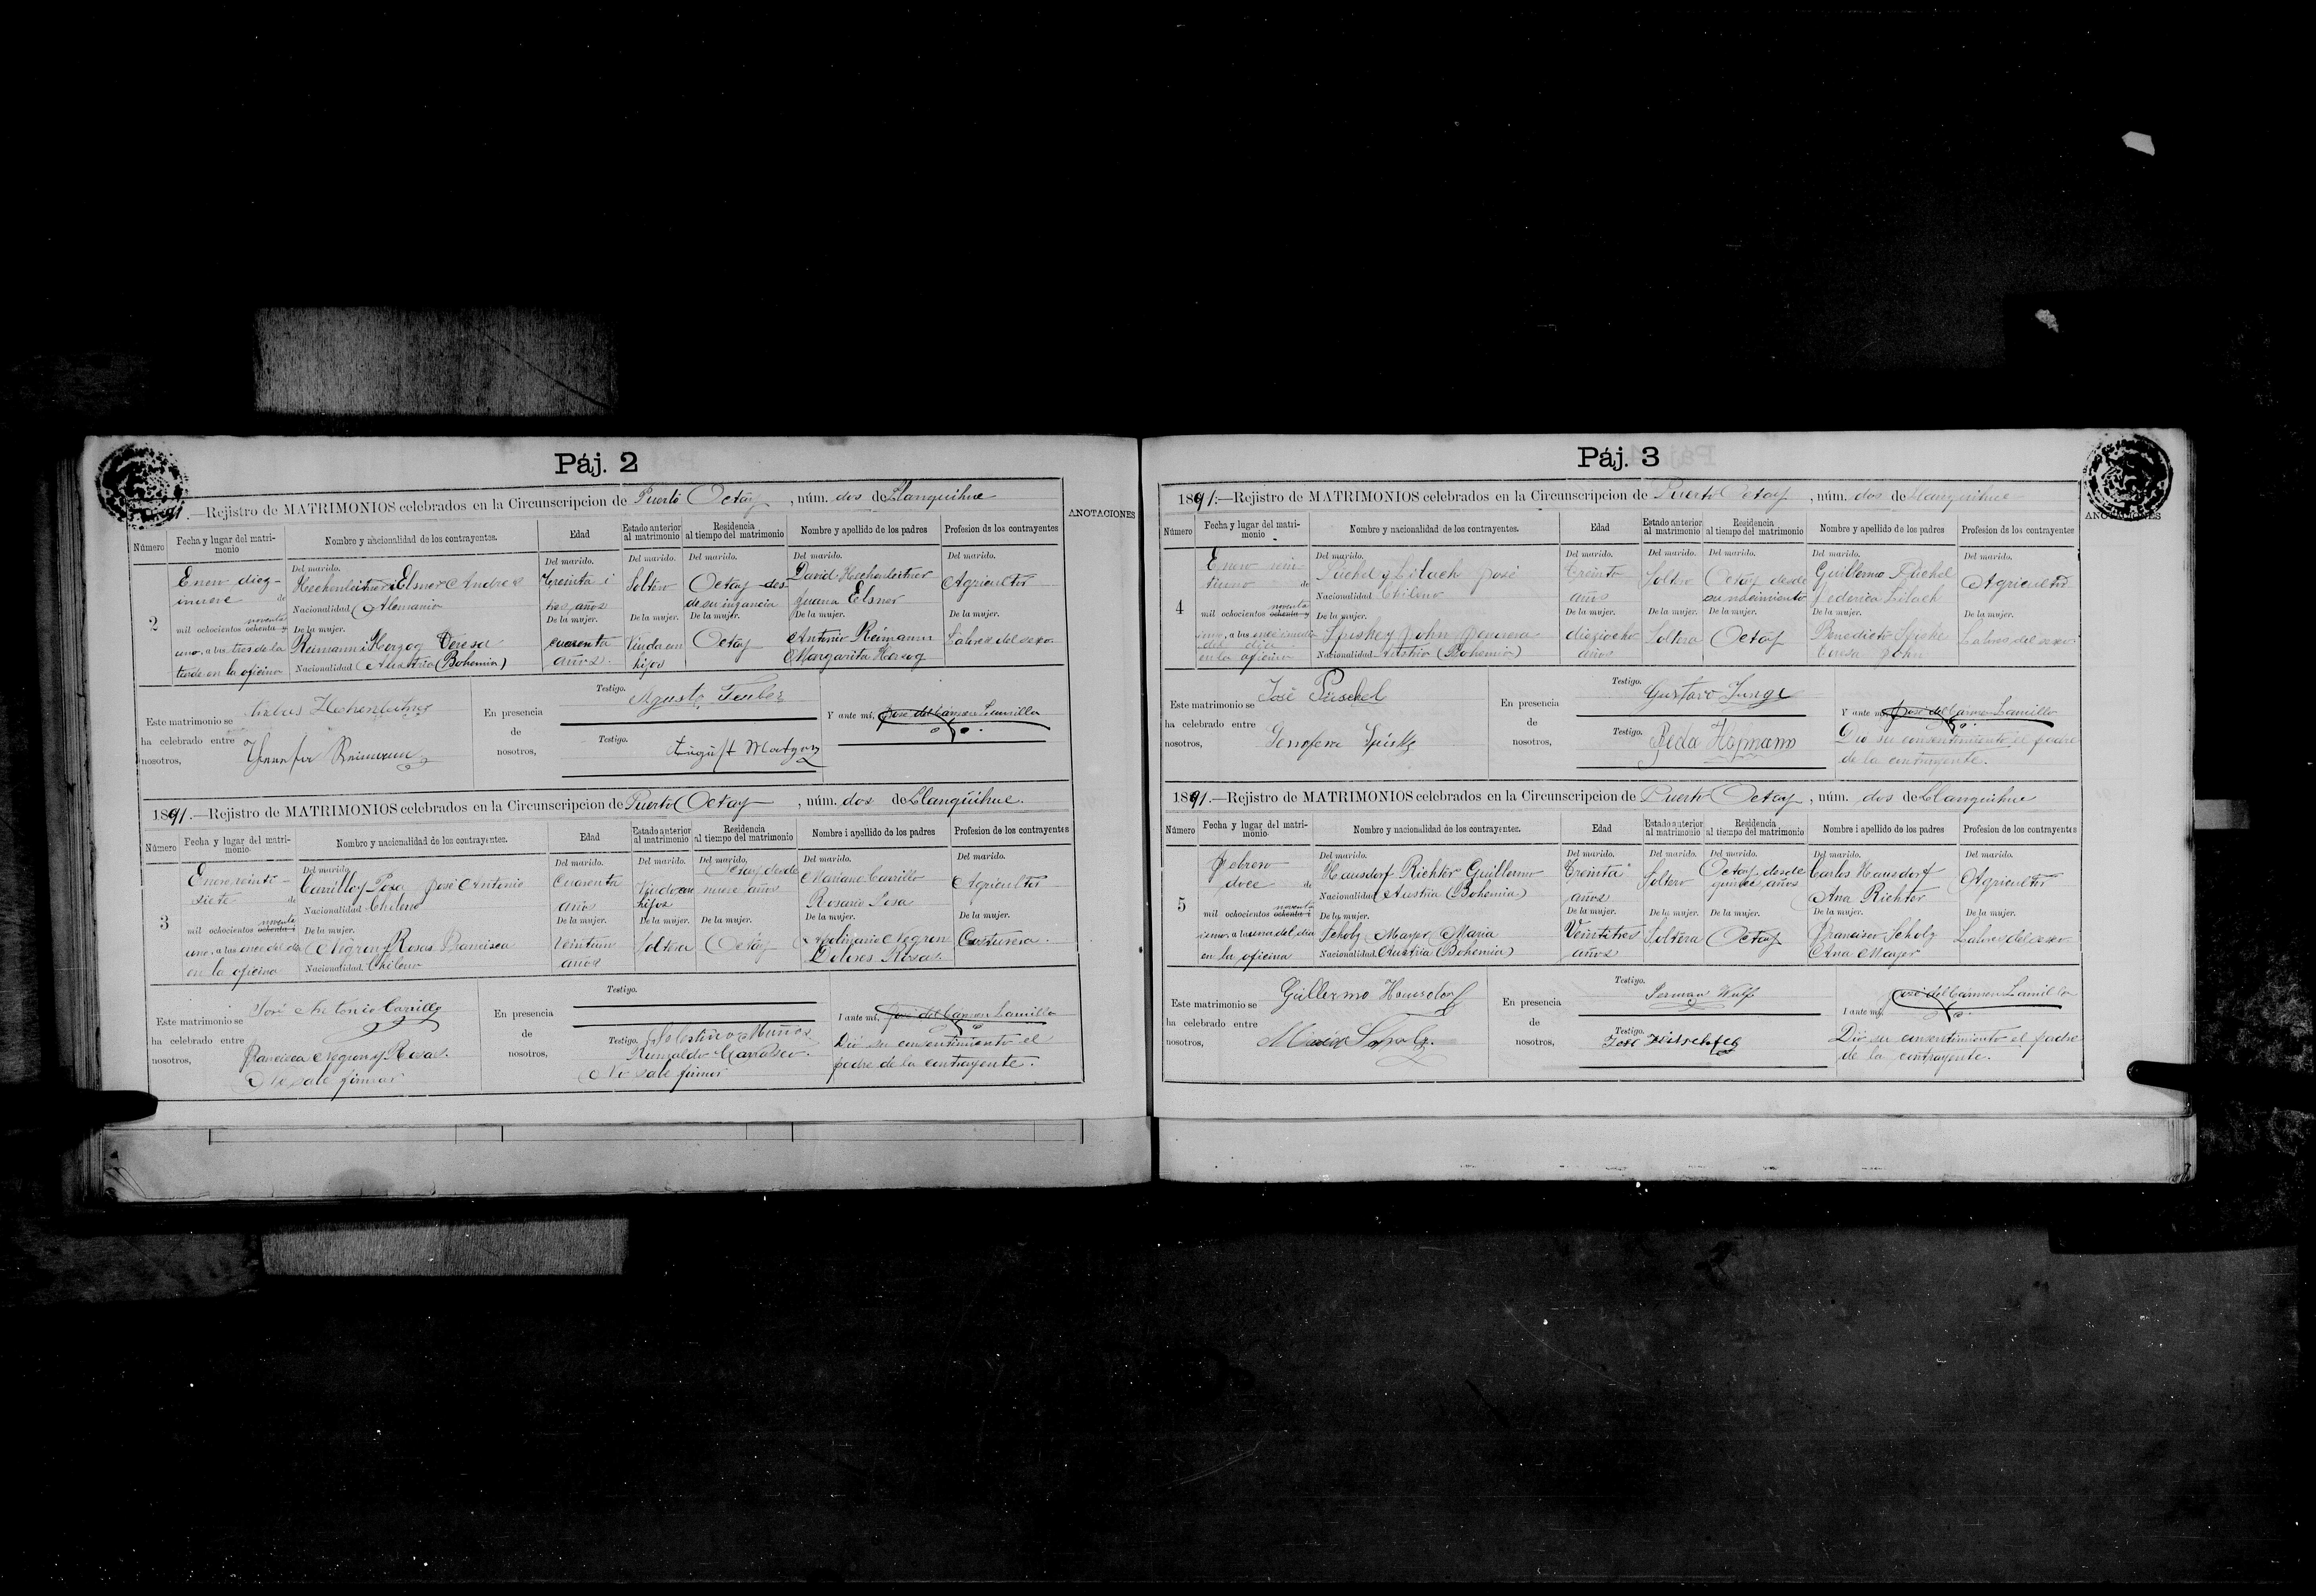 Páj. 2
.—Rejistro de MATRIMONIOS celebrados en la Circunscripcion de Puerto Octay, núm. dos de Llanquihue
ANOTACIONES
Número
Fecha y lugar del matri-
monio
Nombre y nacionalidad de los contrayentes.
Edad
Estado anterior
al matrimonio
Residencia
al tiempo del matrimonio
Nombre y apellido de los padres
Profesion de los contrayentes
2
Enero diez
inueve de
mil ochocientos noventa ochenta y
uno, a las tres de la
tarde en la oficina
Del marido.
Hechenleitner i Elsner Andres
Nacionalidad Alemania
De la mujer.
Reimann i Herzog Teresa
Nacionalidad Austria (Bohemia)
Del marido.
Treinta i
tres años
De la mujer.
cuarenta
años.
Del marido.
Soltero
De la mujer.
Viuda con
hijos
Del marido.
Octay des-
de su infancia
De la mujer.
Octay
Del marido.
David Hechenleitner
Juana Elsner
De la mujer.
Antonio Reimann
Margarita Herzog
Del marido.
Agricultor
De la mujer.
Labores del sexo
Este matrimonio se
ha celebrado entre
nosotros,
En presencia
de
nosotros,
Testigo.
Testigo.
Y ante mí, José del Cármen Lamilla
1891.—Rejistro de MATRIMONIOS celebrados en la Circunscripcion de Puerto Octay, núm. dos de Llanquihue.
Número
Fecha y lugar del matri-
monio
Nombre y nacionalidad de los contrayentes.
Edad
Estado anterior
al matrimonio
Residencia
al tiempo del matrimonio
Nombre i apellido de los padres
Profesion de los contrayentes
3
Enero veinti-
siete de
mil ochocientos noventa ochenta i
uno, a las once del dia
en la oficina
Del marido.
Carrillo y Sosa José Antonio
Nacionalidad Chileno
De la mujer.
Negron y Rosas Francisca
Nacionalidad Chilena
Del marido.
Cuarenta
años
De la mujer.
Veintiun
años
Del marido.
Viudo con
hijos
De la mujer.
Soltera
Del marido.
Octay desde
nueve años
De la mujer.
Octay
Del marido.
Mariano Carrillo
Rosario Sosa
De la mujer.
Apolinario Negron
Dolores Rosas
Del marido.
Agricultor
De la mujer.
Costurera.
Este matrimonio se
ha celebrado entre
nosotros,
José Antonio Carrillo
Francisca Negron y Rosas.
No sabe firmar
En presencia
de
nosotros,
Testigo.
Testigo. Celestino Muños
Reinaldo Carrasco.
No sabe firmar
I ante mí, José del Cármen Lamilla
Dió su consentimiento el
padre de la contrayente.
Páj. 3
1891.—Rejistro de MATRIMONIOS celebrados en la Circunscripcion de Puerto Octay, núm. dos de Llanquihue
ANOTACIONES
Número
Fecha y lugar del matri-
monio
Nombre y nacionalidad de los contrayentes.
Edad
Estado anterior
al matrimonio
Residencia
al tiempo del matrimonio
Nombre y apellido de los padres
Profesion de los contrayentes
4
Enero vein
tiuno de
mil ochocientos noventa ochenta y
uno, a las once i media
del dia
en la oficina
Del marido.
José
Nacionalidad Chileno
De la mujer.
Nacionalidad Austria (Bohemia)
Del marido.
Treinta
años
De la mujer.
dieziocho
años
Del marido.
Soltero
De la mujer.
Soltera
Del marido.
Octay desde
su nacimiento
De la mujer.
Octay
Del marido.
Guillermo
Federica
De la mujer.
Benedicto Spiske
Teresa John
Del marido.
Agricultor
De la mujer.
Labores del sexo
Este matrimonio se
ha celebrado entre
nosotros,
José Püschel
Genofeva
En presencia
de
nosotros,
Testigo.
Gustavo Junge
Testigo.
Y ante mí, José del Cármen Lamilla
Dió su consentimiento el padre
de la contrayente.
1891.—Rejistro de MATRIMONIOS celebrados en la Circunscripcion de Puerto Octay, núm. dos de Llanquihue
Número
Fecha y lugar del matri-
monio
Nombre y nacionalidad de los contrayentes.
Edad
Estado anterior
al matrimonio
Residencia
al tiempo del matrimonio
Nombre i apellido de los padres
Profesion de los contrayentes
5
Febrero
doce de
mil ochocientos noventa ochenta i
uno, a la una del dia
en la oficina
Del marido.
Hausdorf Richter Guillermo
Nacionalidad Austria (Bohemia)
De la mujer.
Scholz Mayer Maria
Nacionalidad Austria (Bohemia)
Del marido.
Treinta
años
De la mujer.
Veintitres
años
Del marido.
Soltero
De la mujer.
Soltera
Del marido.
Octay desde
quince años
De la mujer.
Octay
Del marido.
Carlos Hausdorf
Ana Richter
De la mujer.
Francisco Scholz
Ana Mayer
Del marido.
Agricultor
De la mujer.
Labores del sexo
Este matrimonio se
ha celebrado entre
nosotros,
Guillermo Hausdorf
Maria Scholz.
En presencia
de
nosotros,
Testigo.
German Wulf
Testigo.
I ante mí, José del Cármen Lamilla
Dió su consentimiento el padre
de la contrayente.